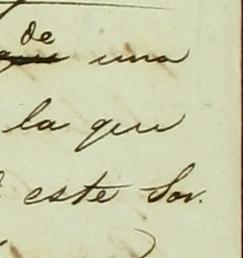 de
que una
la que
este Sor.